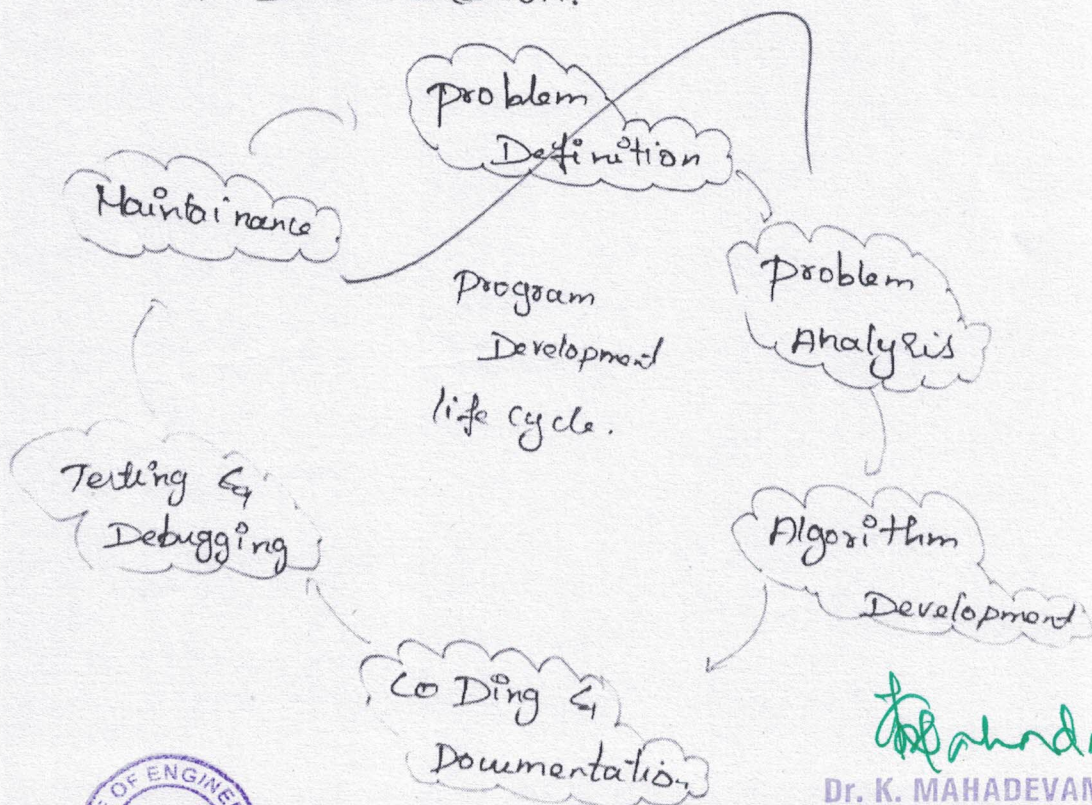 problem
Definition
Maintainance
problem
Analysis
program
Development
life cycle.
Testing &
Debugging
Algorithm
Development
Co Ding &
Documentatio
OF ENGINE
Dr. K. MAHADEVAN